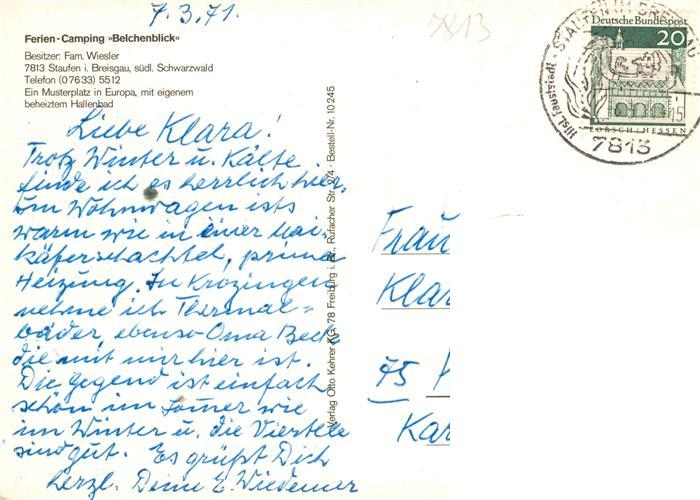 7.3.71.
7813
Ferien-Camping »Belchenblick«
Besitzer: Fam. Wiesler
7813 Staufen i. Breisgau, südl. Schwarzwald
Telefon (07633) 5512
Ein Musterplatz in Europa, mit eigenem
beheiztem Hallenbad
Liebe Klara!
Trotz Winter u. Kälte
finde ich es herrlich hier.
Im Wohnwagen ists
warm wie in einer Mai-
käferschachtel, prima
Heizung. In Krozingen
nehme ich Thermal=
bäder, ebenso Oma Beck
die mit mir hier ist.
Die Gegend ist einfach
schön im Somer wie
im Winter u. die Viertele
sind gut. Es grüßt Dich
herzl. Deine E. Wiedemer
Verlag Otto Kehrer KG, 78 Freiburg i. Br., Rufacher Str. 2/4 · Bestell-Nr. 10245
Deutsche Bundespost
20
LORSCH/HESSEN
STAUFEN IM BREISGAU
Hist. Fauststadt
15
7813
Frau
Klar
75
Kar